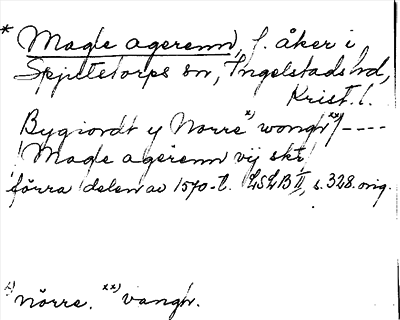 * Magle agerenn, f. åker i
Spjutstorps sn, Ingelstads hd,
Krist. l.
Bygiordt y Norre x) wongh xx) ----
Magle agerenn vij skt
förra delen av 1570-t. LSLB II, s. 328. orig.
x) nörre. xx) vangh.